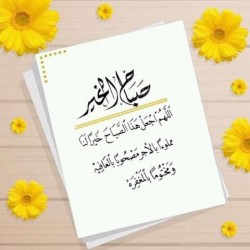 صباح الخير
اللهم اجعل هذا الصباح خيرا لنا
مملوءا بالأجر مصحوبا بالعافيه
ومختوما بالمغفرة